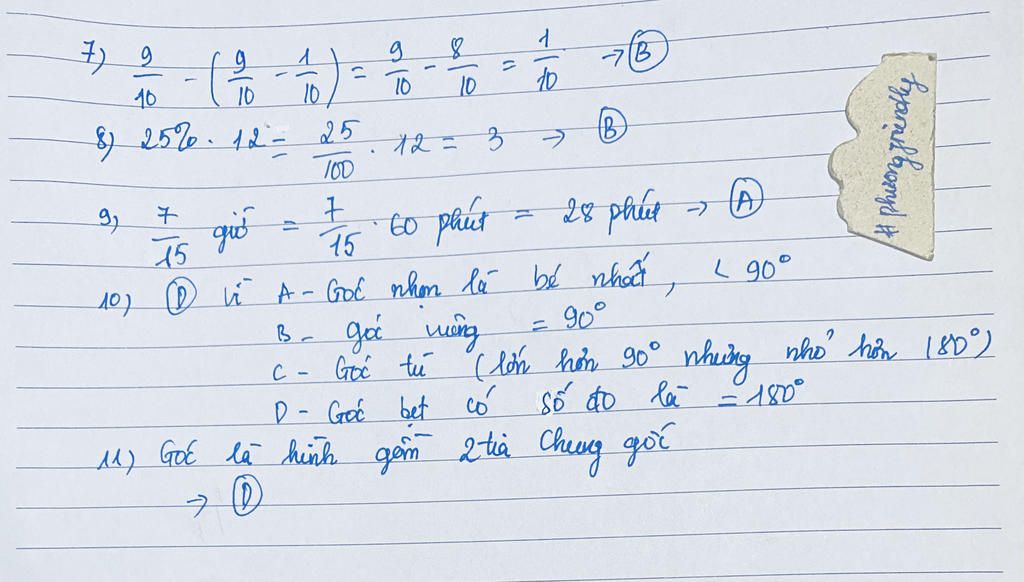 7) 9/10 - (9/10 - 1/10) = 9/10 - 8/10 = 1/10 → B
8) 25% . 12 = 25/100 . 12 = 3 → B
9) 7/15 giờ = 7/15 . 60 phút = 28 phút → A
10) D vì A - Góc nhọn là bé nhất, < 90°
B - góc vuông = 90°
C - Góc tù (lớn hơn 90° nhưng nhỏ hơn 180°)
D - Góc bẹt có số đo là = 180°
11) Góc là hình gồm 2 tia chung gốc
→ D
#phuongfriendly